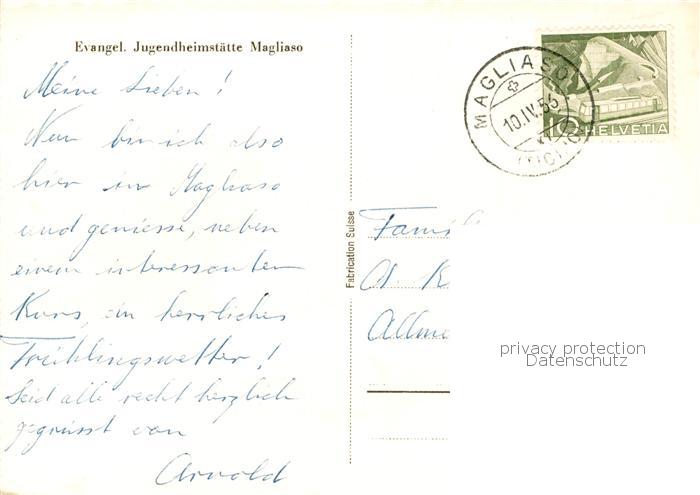 Evangel. Jugendheimstätte Magliaso
Meine Lieben!
Nun bin ich also
hier in Magliaso
und geniesse, neben
einem interessanten
Kurs, ein herrliches
Frühlingswetter!
Seid alle recht herzlich
gegrüsst von
Arnold
Fabrication Suisse
MAGLIASO
10.IV.55
(TICINO)
10 HELVETIA
Famil
A. K
Allme
privacy protection
Datenschutz